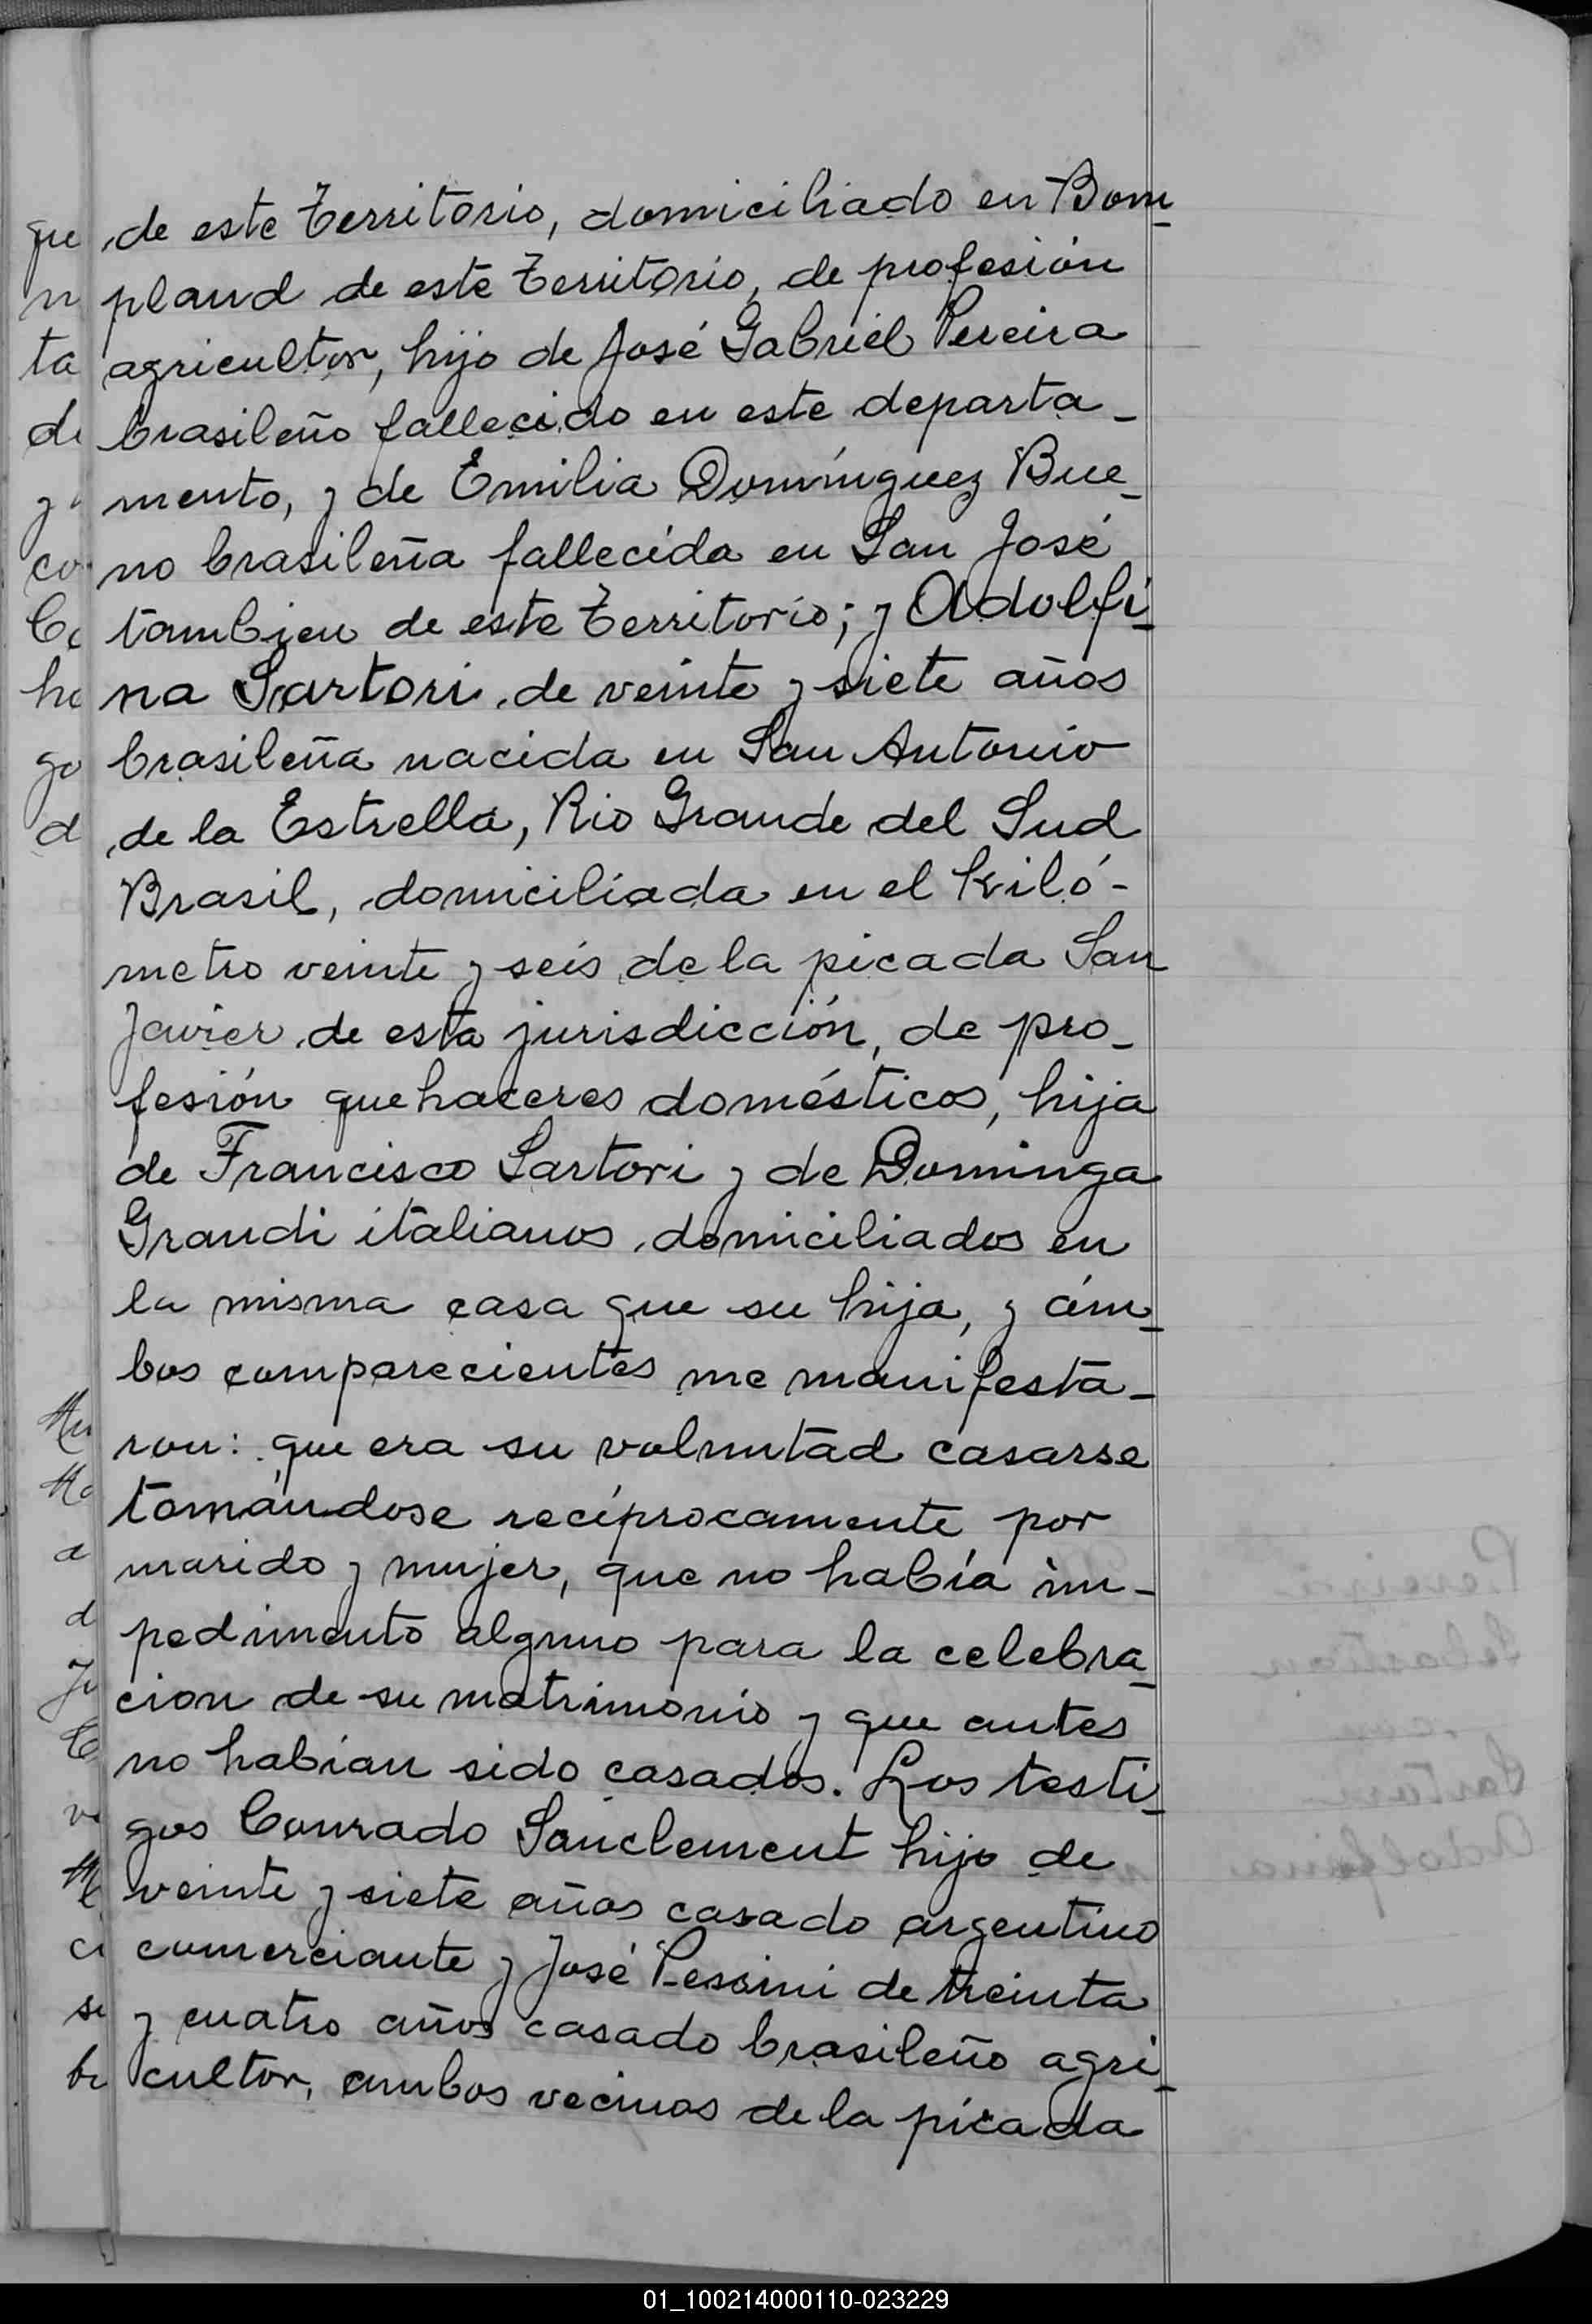 de este Territorio, domiciliado en Bom_
pland de este Territorio, de profesión
agricultor, hijo de José Gabriel Pereira
brasileño fallecido en este departa_
mento, y de Emilia Domínguez Bue_
no brasileña fallecida en San José
tambien de este Territorio; y Adolfi_
na Sartori, de veinte y siete años
brasileña nacida en San Antonio
de la Estrella, Rio Grande del Sud
Brasil, domiciliada en el Kiló-
metro veinte y seis de la picada San
Javier de esta jurisdicción, de pro_
fesión quehaceres domésticos, hija
de Francisco Sartori y de Dominga
Grandi italianos, domiciliados en
la misma casa que su hija, y ám_
bos comparecientes me manifesta_
ron: que era su voluntad casarse
tomándose recíprocamente por
marido y mujer, que no había im-
pedimento alguno para la celebra_
cion de su matrimonio y que antes
no habían sido casados. Los testi_
gos Conrado Sanclement hijo de
veinte y siete años casado argentino
comerciante y José Pessini de treinta
y cuatro años casado brasileño agri_
cultor, ambos vecinos de la picada
01_100214000110-023229